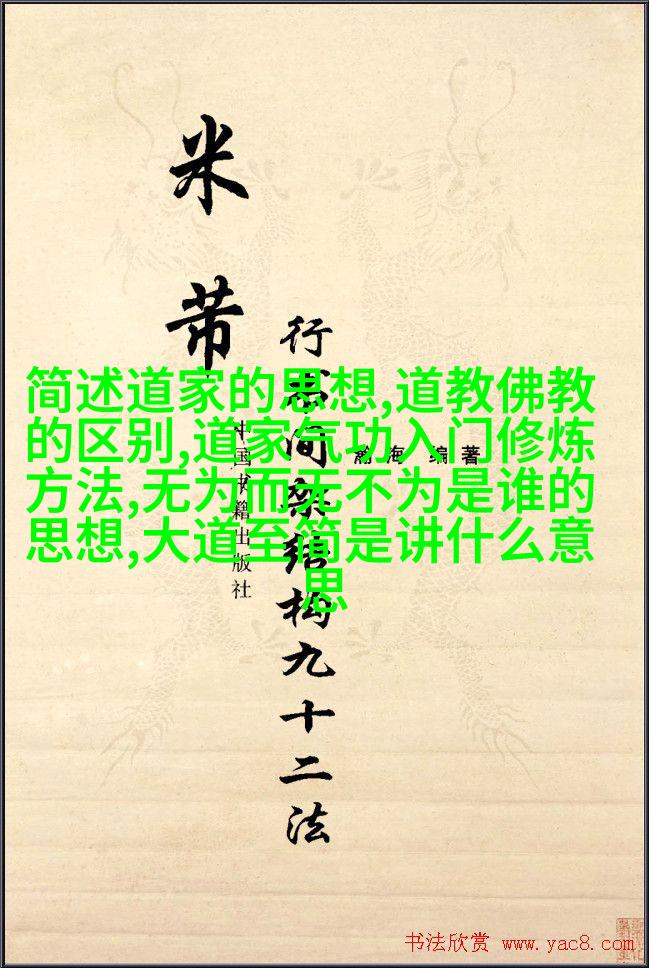 米芾
行书间架结构九十二法
海 编著
中国书籍出版社
简述道家的思想,道教佛教
的区别,道家气功入门修炼
方法,无为而无不为是谁的
思想,大道至简是讲什么意
思
书法欣赏 www.yac8.com